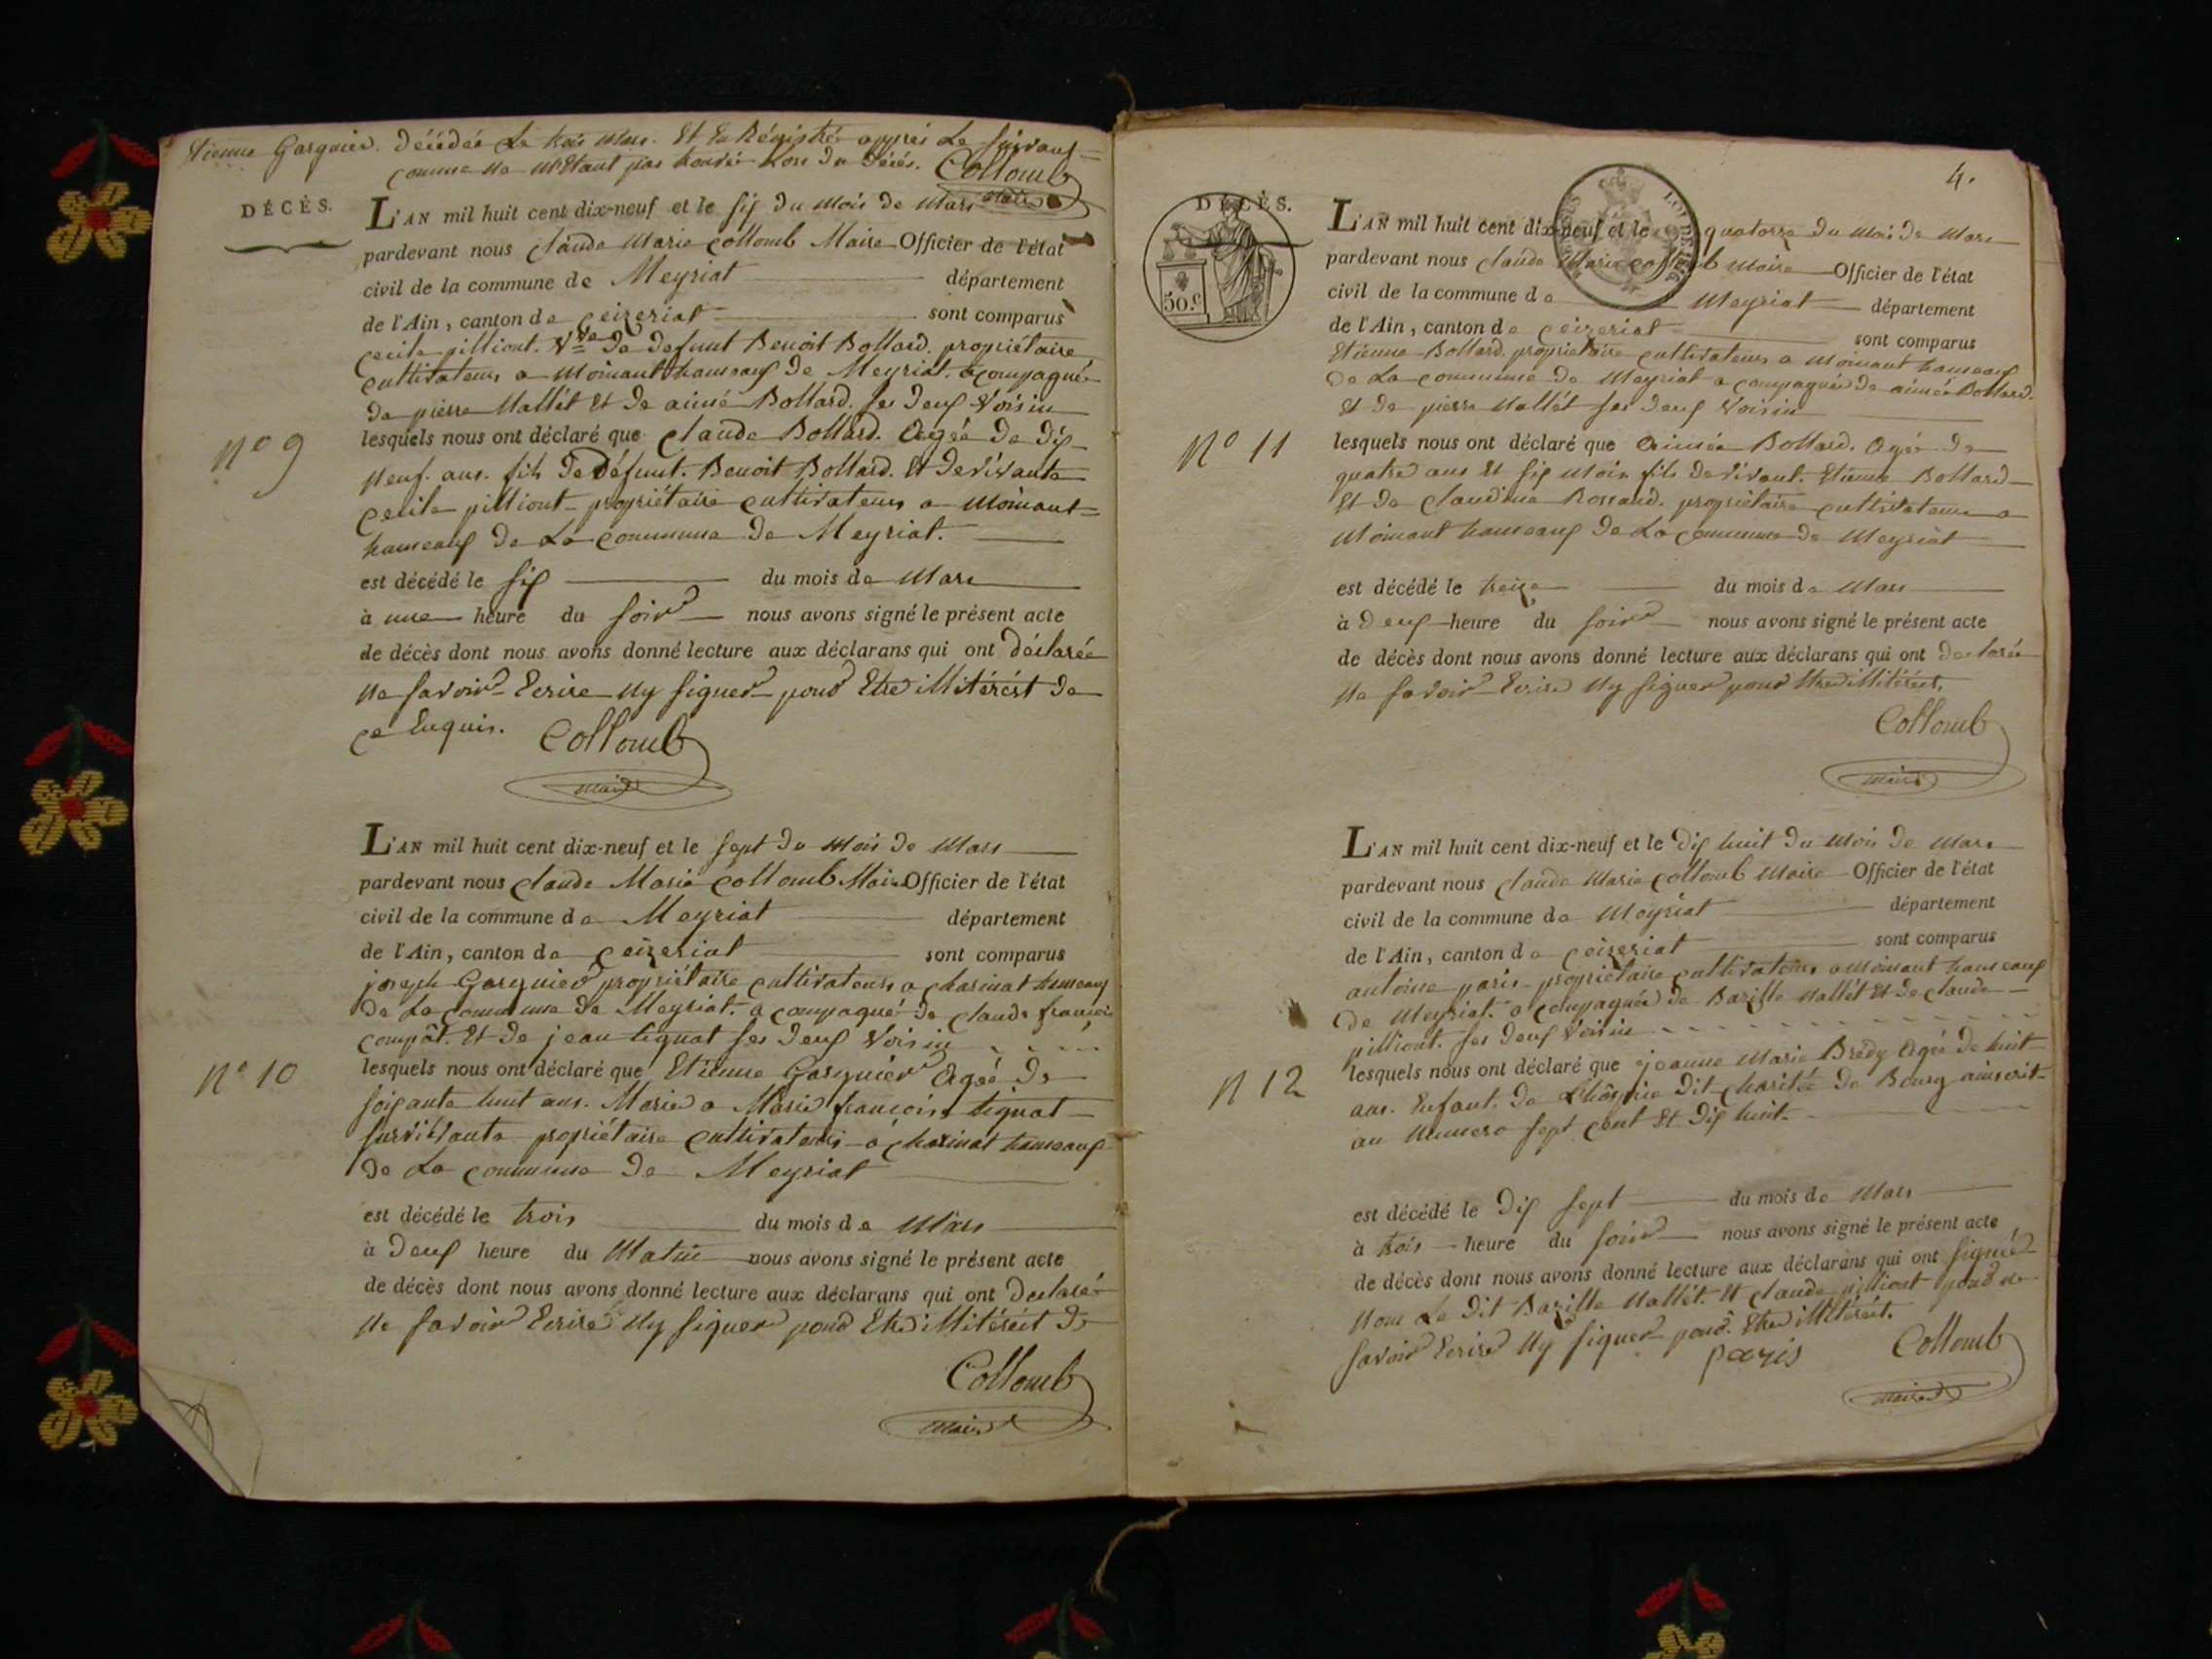 Etienne Gorguier. Décédée Le trois Mars. Et En Régistré apprés Le Suivant=
comme Ne M'Etant pas trouvée Lors du Décés. Collomb
Maire
DÉCÈS.
L'AN mil huit cent dix-neuf et le Six du Mois de Mars
pardevant nous Claude Marie Collomb Maire Officier de l'état
civil de la commune de Meyriat département
de l'Ain, canton de Ceizeriat sont comparus
Cecile pilliont. Vve De Defunt Benoit Bollard. propriétaire
Cultivateurs a Moinant hameaux De Meyriat. acompagné
De pierre Mallét Et De aimé Bollard. Ses Deux Voisin
N° 9
lesquels nous ont déclaré que Claude Bollard. Agée De Dix
Neuf. ans. fils De Défunt. Benoit Bollard. Et De Vivante
Cecile pilliont propriétaire Cultivateurs a Moinant=
hameaux De La Commune De Meyriat.
est décédé le Six du mois de Mars
à une heure du Soir nous avons signé le présent acte
de décès dont nous avons donné lecture aux déclarans qui ont Déclarée
Ne Savoir Ecrire Ny Signer pour Etre illitérést De
Ce Enquis. Collomb
Maire
L'AN mil huit cent dix-neuf et le Sept Du Mois De Mars
pardevant nous Claude Marie Collomb Maire Officier de l'état
civil de la commune de Meyriat département
de l'Ain, canton de Ceizeriat sont comparus
joseph Gorguier propriétaire Cultivateurs a Charinat hameaux
De La Commune De Meyriat. acompagné De Claude françois
Compât. Et De jean tignat Ses Deux Voisin
N° 10
lesquels nous ont déclaré que Etienne Gorguier Agée De
Soixante huit ans. Marie a Marie françoise tignat
Survivante propriétaire Cultivateurs a Charinat hameaux
De La Commune De Meyriat
est décédé le trois du mois de Mars
à Deux heure du Matin nous avons signé le présent acte
de décès dont nous avons donné lecture aux déclarans qui ont Declaré
Ne Savoir Ecrire Ny Signer pour Etre illitéréit De
Collomb
Maire
4.
DÉCÈS.
50.c
L'AN mil huit cent dix-neuf et le quatorze Du Mois De Mars
pardevant nous Claude Marie Collomb Maire Officier de l'état
civil de la commune de Meyriat département
de l'Ain, canton de Ceizeriat sont comparus
Etienne Bollard. propriétaire Cultivateurs a Moinant hameaux
De La Commune De Meyriat acompagnée De aimée Bollard.
Et De pierre Mallét Ses Deux Voisin
N° 11
lesquels nous ont déclaré que aimée Bollard. Agée De
quatre ans Et Six Mois fils De Vivant. Etienne Bollard
Et De Claudine propriétaire Cultivateurs a
Moinant hameaux De La Commune De Meyriat
est décédé le treize du mois de Mars
à Deux heure du Soir nous avons signé le présent acte
de décès dont nous avons donné lecture aux déclarans qui ont Declarée
Ne Savoir Ecrire Ny Signer pour Etre illitéréit.
Collomb
Maire
L'AN mil huit cent dix-neuf et le Dix huit Du Mois De Mars
pardevant nous Claude Marie Collomb Maire Officier de l'état
civil de la commune de Meyriat département
de l'Ain, canton de Ceizeriat sont comparus
antoine paris propriétaire Cultivateurs a Moinant hameaux
De Meyriat. acompagnée De Bazille Mallét Et De Claude
pilliont. Ses Deux Voisin
N 12
lesquels nous ont déclaré que jeanne Marie Brédy Agée De huit
ans. Enfant. De L'hospice Dit Charitée De Bourg ainscrit
au Numero Sept Cent Et Dix huit.
est décédé le Dix Sept du mois de Mars
à trois heure du Soir nous avons signé le présent acte
de décès dont nous avons donné lecture aux déclarans qui ont Signée
Non Le Dit Bazille Mallét. Et Claude pilliont pour Ne
Savoir Ecrire Ny Signer pour. Etre illitéréit.
paris Collomb
Maire